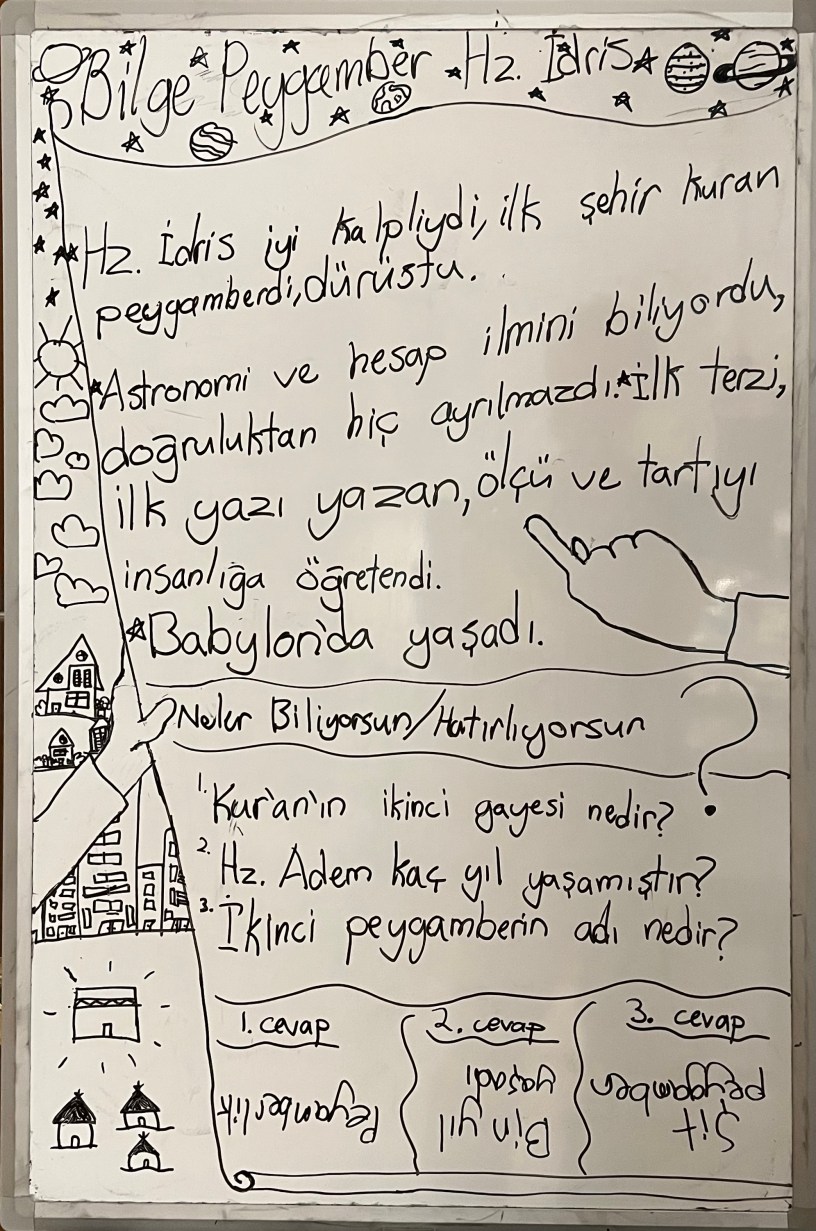 Bilge Peygamber Hz. İdris
Hz. İdris iyi kalpliydi, ilk şehir kuran
peygamberdi, dürüsttu.
Astronomi ve hesap ilmini biliyordu,
doğruluktan hiç ayrılmazdı. İlk terzi,
ilk yazı yazan, ölçü ve tartıyı
insanlığa öğretendi.
Babylon'da yaşadı.
Neler Biliyorsun/Hatırlıyorsun ?
1. Kur'an'ın ikinci gayesi nedir?
2. Hz. Adem kaç yıl yaşamıştır?
3. İkinci peygamberin adı nedir?
1. cevap
Peygamberlik
2. cevap
Bin yıl
yaşadı
3. cevap
Şit
peygamber